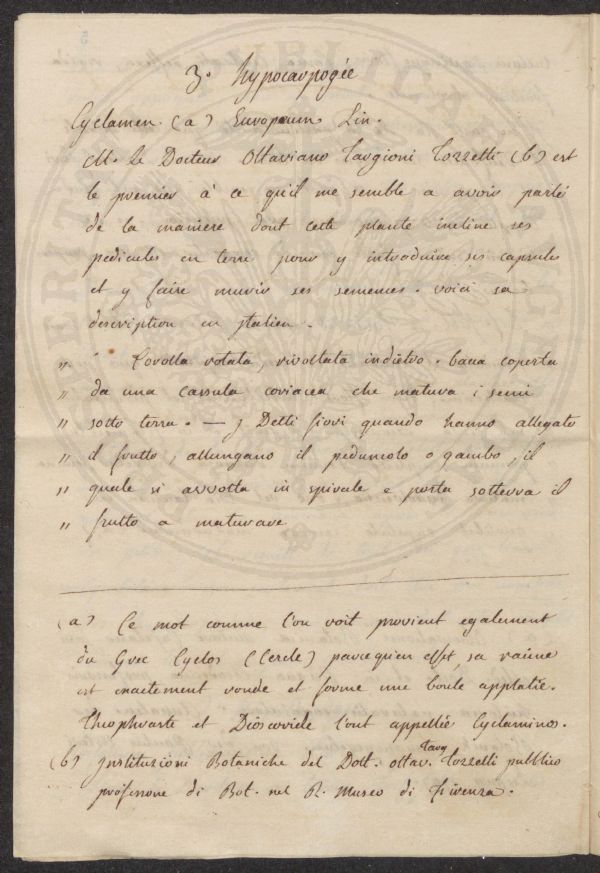 3.° hypocarpogée
Cyclamen (a) Europæum Lin.
M. le Docteur Ottaviano Targioni Tozzetti (b) est
le premier à ce qu'il me semble a avoir parlé
de la maniere dont cette plante incline ses
pedicules en terre pour y introduire ses capsules
et y faire murir ses semences. voici sa
description en jtalien.
" Corolla rotata, rivoltata indietro. bacca coperta
" da una cassula coriacea che matura i semi
" sotto terra. — j Detti fiori quando hanno allegato
" il frutto, allungano il peduncolo o gambo, il
" quale si arrotta in spirale e porta sotterra il
" frutto a maturare
(a) Ce mot comme l'on voit provient egalement
du Grec Cyclos (Cercle) parcequ'en effet sa racine
est exactement ronde et forme une boule applatie.
Theophraste et Dioscoride l'ont appellée Cyclaminos.
(b) jnstituzioni Botaniche del Dott. ottav. Targ Tozzetti pubblico
professore di Bot. nel R. Museo di Firenza.